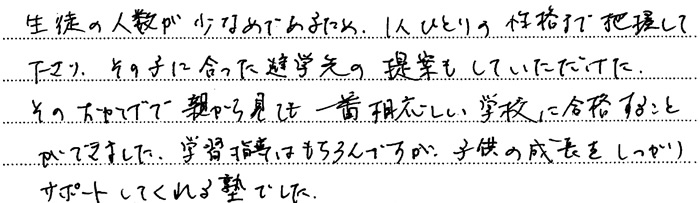 生徒の人数が少なめであるため、1人ひとりの性格まで把握して
下さり、その子に合った進学先の提案もしていただけた。
そのおかげで親から見ても一番相応しい学校に合格すること
ができました。学習指導はもちろんですが、子供の成長をしっかり
サポートしてくれる塾でした。